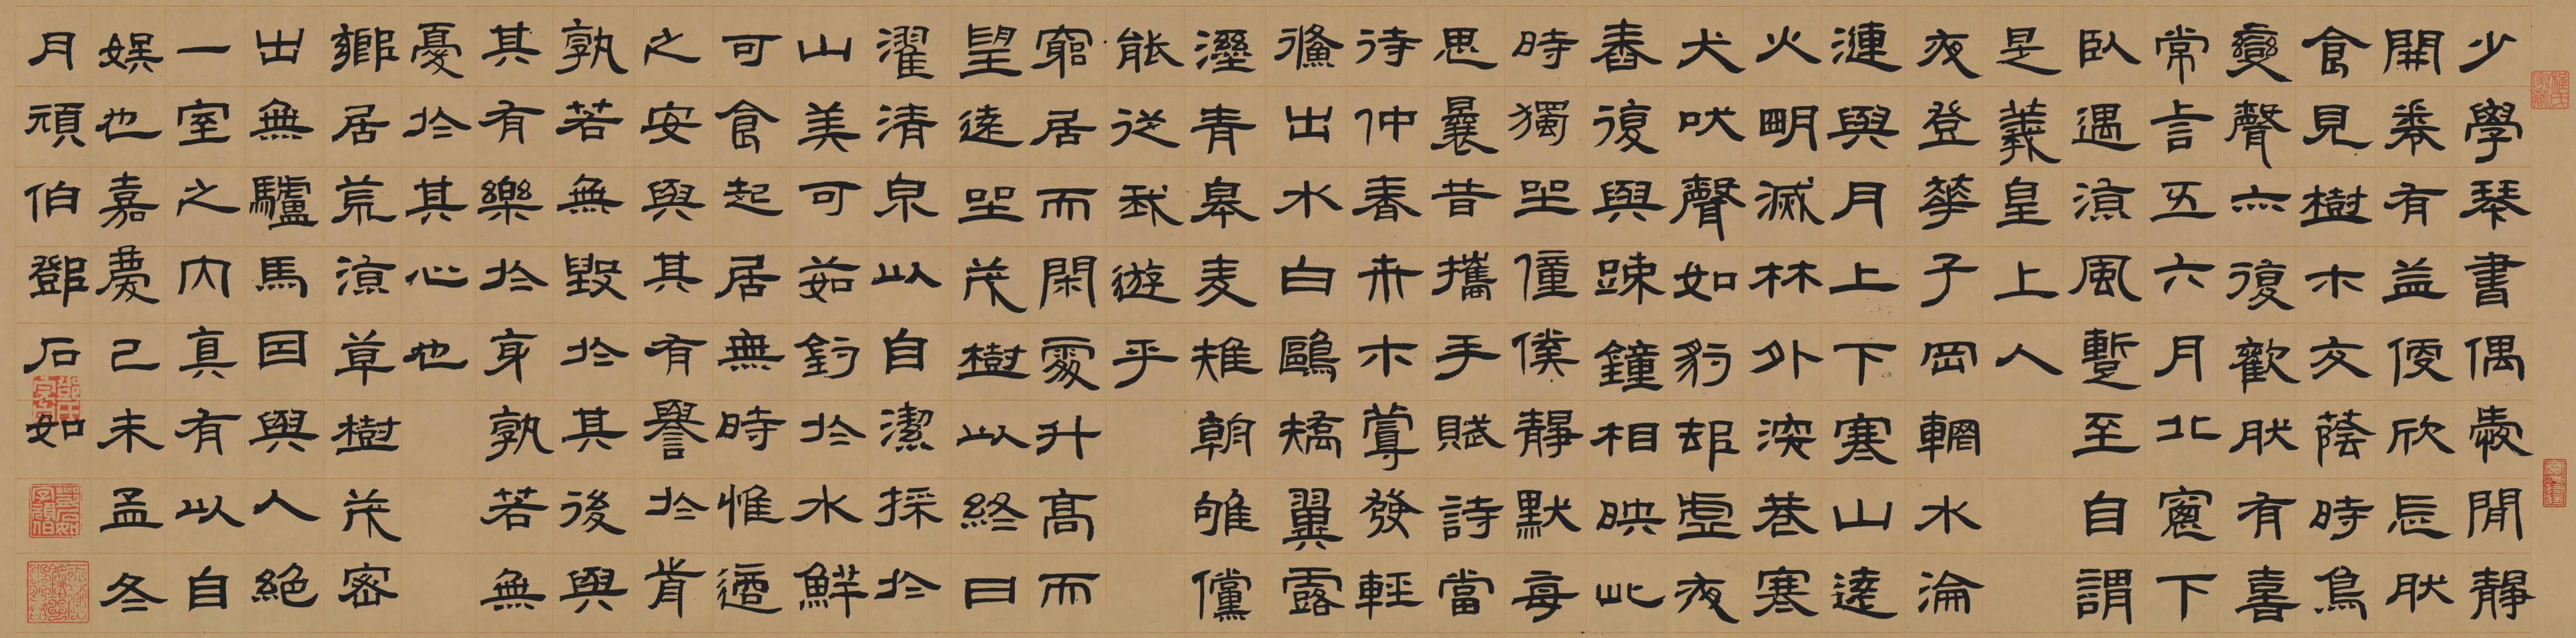 少學琴書偶愛閒靜
開卷有益便欣忘然
食見樹木交蔭時鳥
變聲亦復歡然有喜
常言五六月北窗下
臥遇涼風暫至自謂
是羲皇上人
夜登華子岡輞水淪
漣與月上下寒山遠
火明滅林外深巷寒
犬吠聲如豹邨虛夜
舂復與疎鐘相映此
時獨坐僮僕靜默每
思曩昔攜手賦詩當
待仲春卉木蔓發輕
鯈出水白鷗矯翼露
溼青皋麦雉朝雊儻
能從我遊乎
窮居而閑處升高而
望遠坐茂樹以終日
濯清泉以自潔採於
山美可茹釣於水鮮
可食起居無時惟適
之安與其有譽於前
孰若無毀於其後與
其有樂於身孰若無
憂於其心也
鄉居荒涼草樹茂密
出無驢馬因與人絕
一室之內真有以自
娛也嘉慶己未孟冬
月頑伯鄧石如